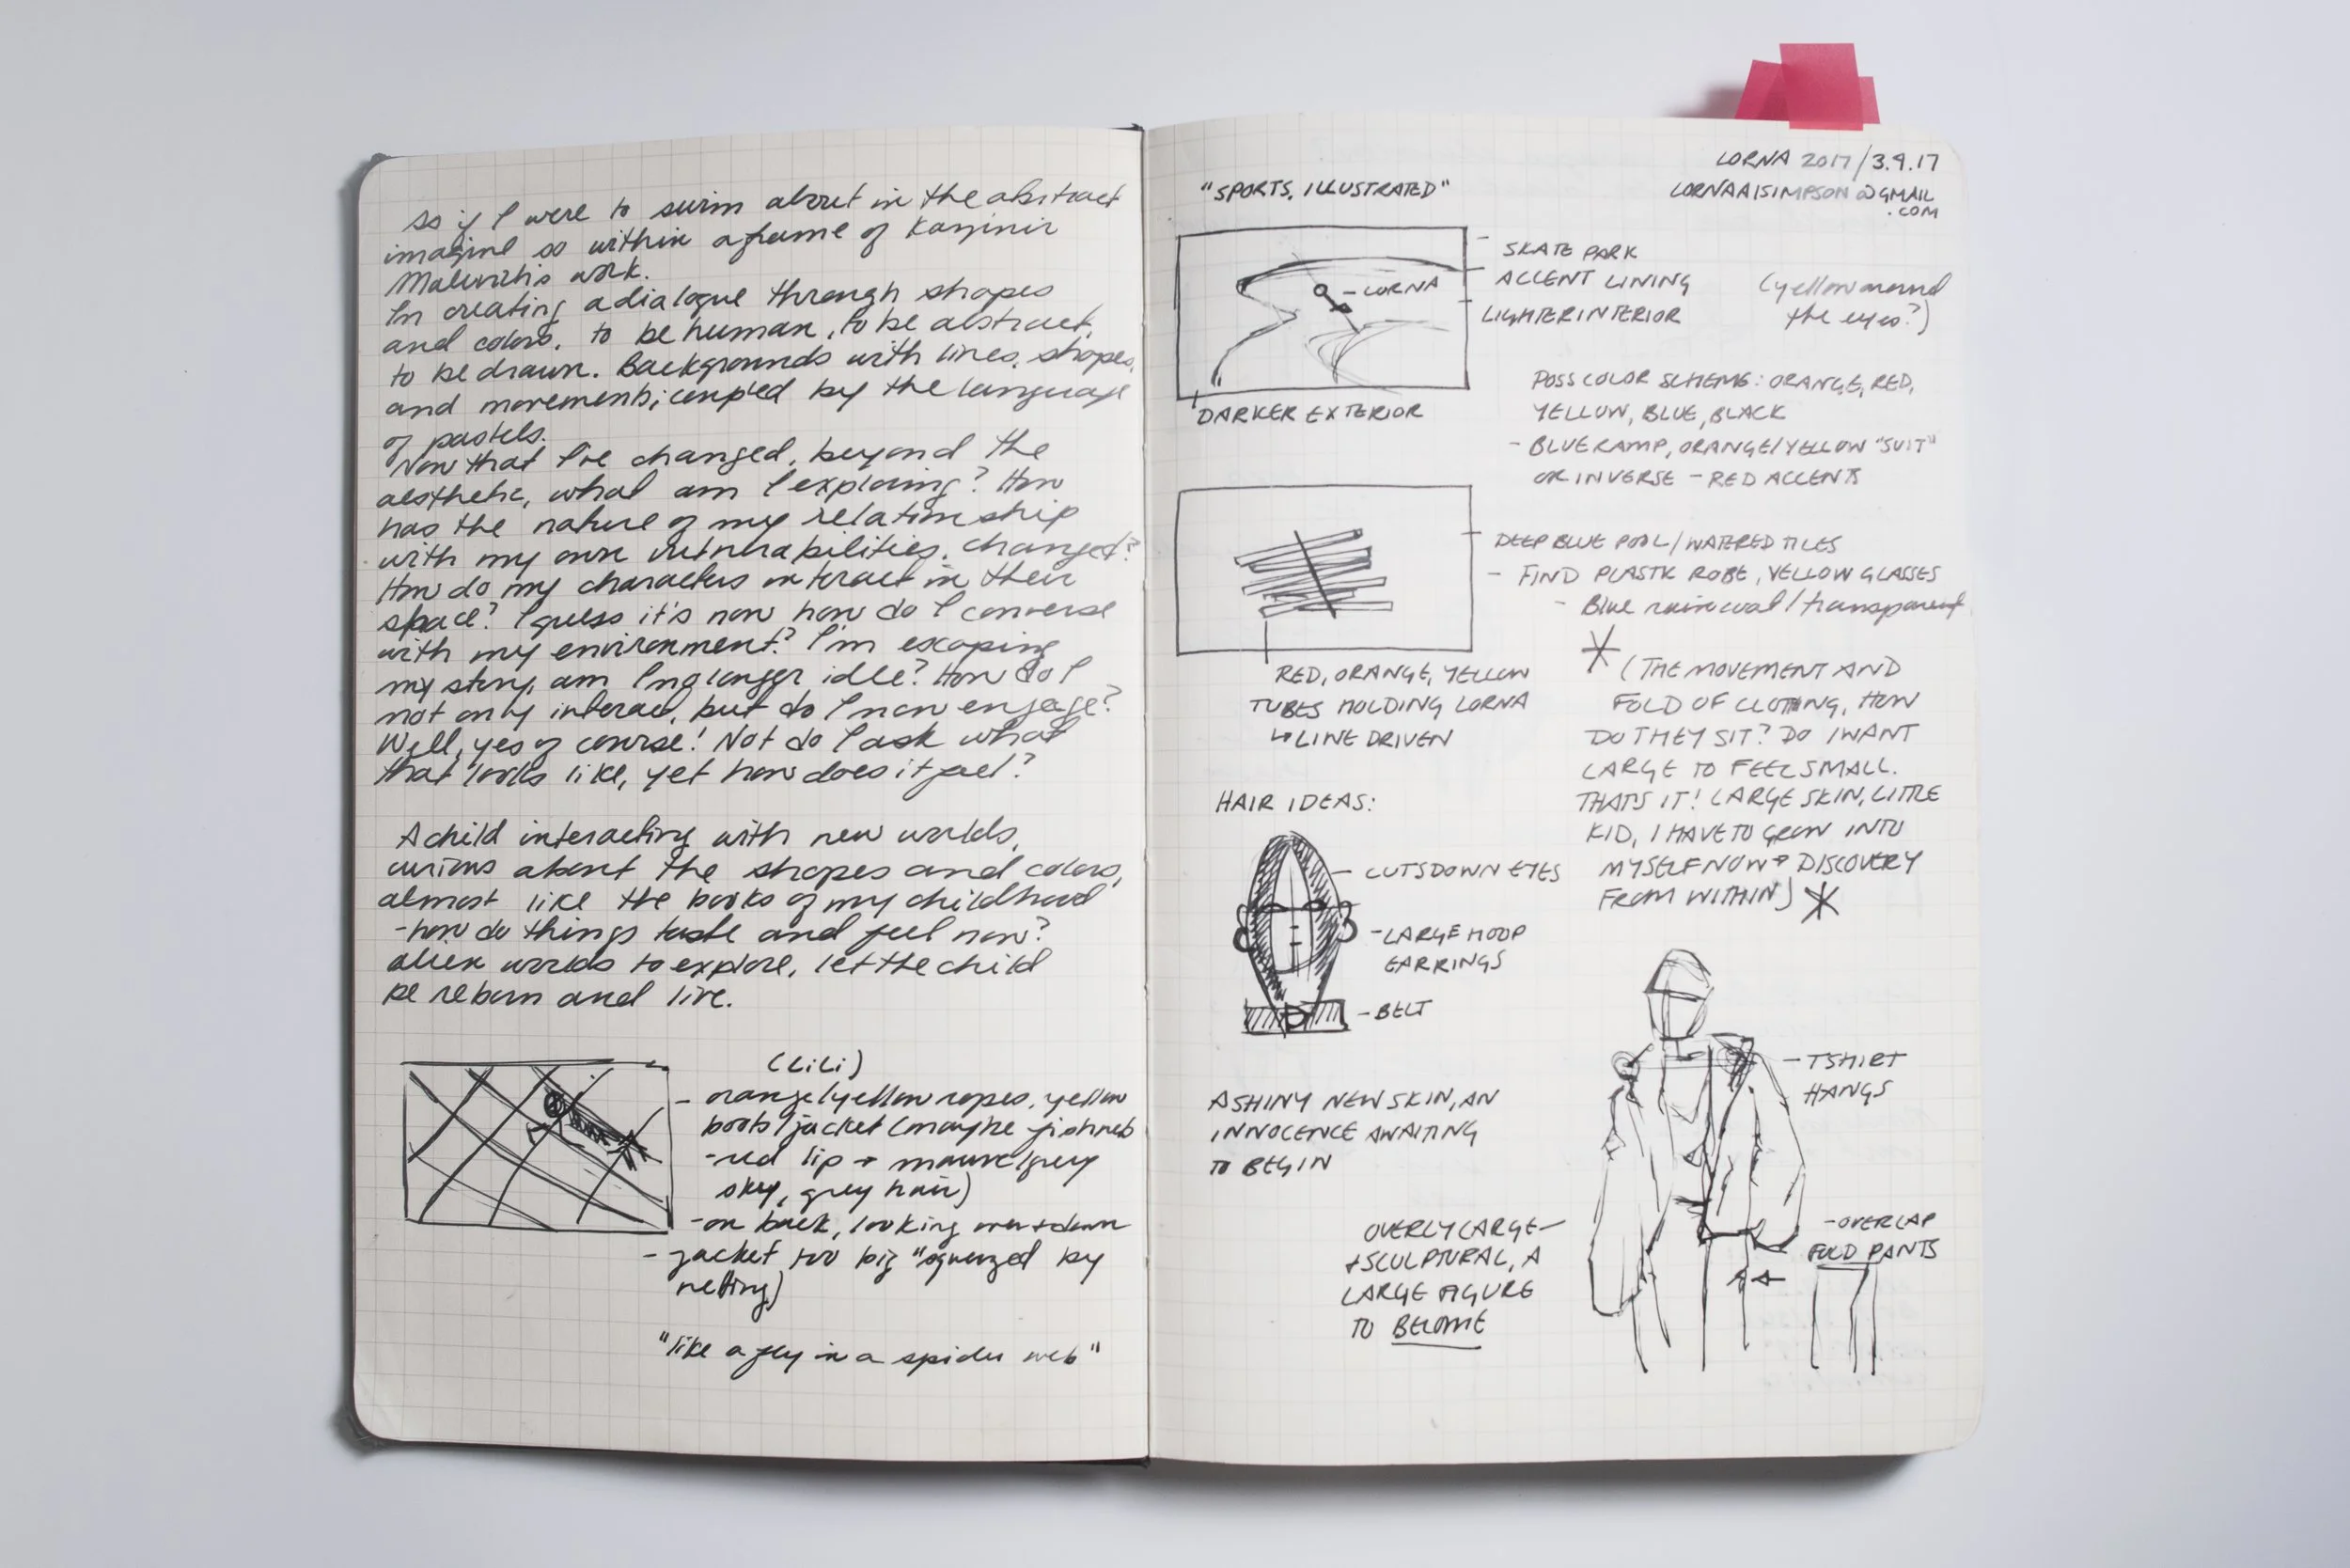 As if I were to swim about in the abstract
imagine so within a frame of Kazimir
work.
In creating a dialogue through shapes
and colors, to be human, to be abstract,
to be drawn. Backgrounds with lines, shapes,
and movements; coupled by the language
of pastels.
Now that I've changed, beyond the
aesthetic, what am I exploring? How
has the nature of my relationship
with my own vulnerabilities, changed?
How do my characters interact in their
space? I guess it's now how do I converse
with my environment? I'm escaping
my story, am I no longer idle? How do I
not only interact, but do I now engage?
Well, yes of course! Not do I ask what
that looks like, yet how does it feel?
A child interacting with new worlds,
curious about the shapes and colors,
almost like the books of my childhood
-how do things taste and feel now?
alien worlds to explore, let the child
be reborn and live.
(LiLi)
- orange/yellow ropes, yellow
boots/jacket (maybe fishnets
-red lip + mauve/grey
sky, grey hair)
-on back, looking over + down
- jacket too big "squeezed by
netting)
"like a fly in a spider web"
LORNA 2017/3.9.17
LORNAA1SIMPSON@GMAIL
.COM
"SPORTS, ILLUSTRATED"
- SKATE PARK
ACCENT LINING
LIGHTER INTERIOR
(yellow around
the eyes?)
- LORNA
DARKER EXTERIOR
POSS COLOR SCHEME: ORANGE, RED,
YELLOW, BLUE, BLACK
- BLUE RAMP, ORANGE/YELLOW "SUIT"
OR INVERSE - RED ACCENTS
DEEP BLUE POOL/WATERED TILES
- FIND PLASTIC ROBE, YELLOW GLASSES
- Blue raincoat/transparent
RED, ORANGE, YELLOW
TUBES HOLDING LORNA
↳ LINE DRIVEN
* (THE MOVEMENT AND
FOLD OF CLOTHING, HOW
DO THEY SIT? DO I WANT
LARGE TO FEEL SMALL.
THATS IT! LARGE SKIN, LITTLE
KID, I HAVE TO GROW INTO
MYSELF NOW → DISCOVERY
FROM WITHIN) *
HAIR IDEAS:
- CUTS DOWN EYES
- LARGE HOOP
EARRINGS
- BELT
A SHINY NEW SKIN, AN
INNOCENCE AWAITING
TO BEGIN
- TSHIRT
HANGS
OVERLY LARGE -
+ SCULPTURAL, A
LARGE FIGURE
TO BECOME
- OVERLAP
FOLD PANTS